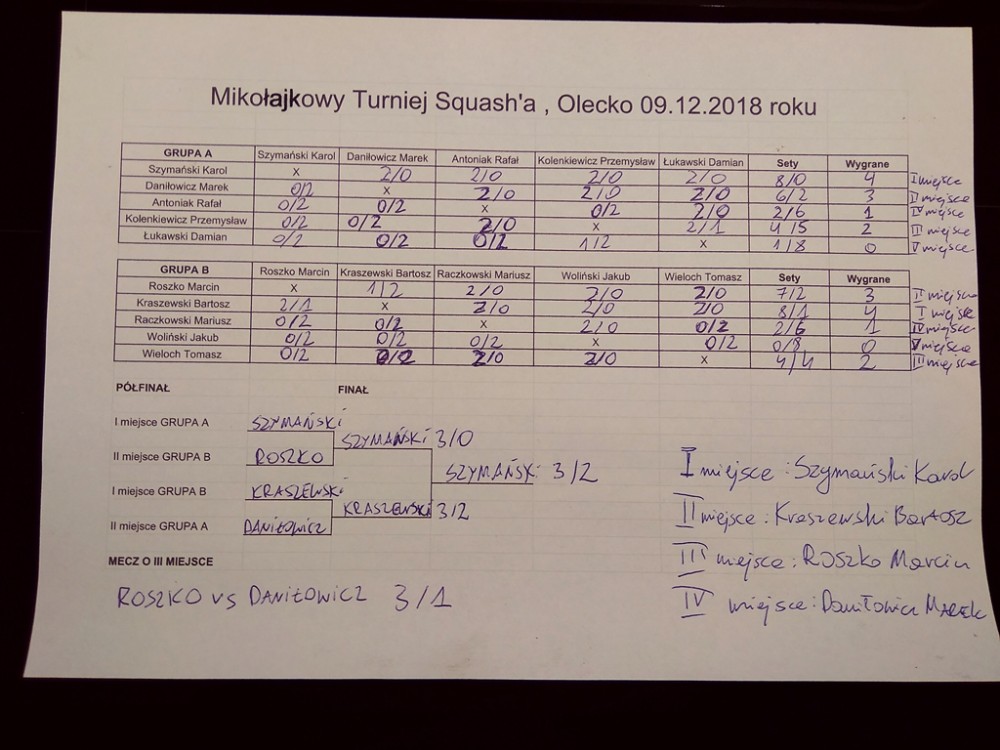 Mikołajkowy Turniej Squash'a , Olecko 09.12.2018 roku
GRUPA A Szymański Karol Daniłowicz Marek Antoniak Rafał Kolenkiewicz Przemysław Łukawski Damian Sety Wygrane
Szymański Karol x 2/0 2/0 2/0 2/0 8/0 4 I miejsce
Daniłowicz Marek 0/2 x 2/0 2/0 2/0 6/2 3 II miejsce
Antoniak Rafał 0/2 0/2 x 0/2 2/0 2/6 1 IV miejsce
Kolenkiewicz Przemysław 0/2 0/2 2/0 x 2/1 4/5 2 III miejsce
Łukawski Damian 0/2 0/2 0/2 1/2 x 1/8 0 V miejsce
GRUPA B Roszko Marcin Kraszewski Bartosz Raczkowski Mariusz Woliński Jakub Wieloch Tomasz Sety Wygrane
Roszko Marcin x 1/2 2/0 2/0 2/0 7/2 3 II miejsce
Kraszewski Bartosz 2/1 x 2/0 2/0 2/0 8/1 4 I miejsce
Raczkowski Mariusz 0/2 0/2 x 2/0 0/2 2/6 1 IV miejsce
Woliński Jakub 0/2 0/2 0/2 x 0/2 0/8 0 V miejsce
Wieloch Tomasz 0/2 0/2 2/0 2/0 x 4/4 2 III miejsce
PÓŁFINAŁ FINAŁ
I miejsce GRUPA A SZYMAŃSKI
SZYMAŃSKI 3/0
II miejsce GRUPA B ROSZKO
SZYMAŃSKI 3/2
I miejsce GRUPA B KRASZEWSKI
KRASZEWSKI 3/2
II miejsce GRUPA A DANIŁOWICZ
MECZ O III MIEJSCE
ROSZKO VS DANIŁOWICZ 3/1
I miejsce : Szymański Karol
II miejsce : Kraszewski Bartosz
III miejsce : ROSZKO Marcin
IV miejsce : Daniłowicz MAREK